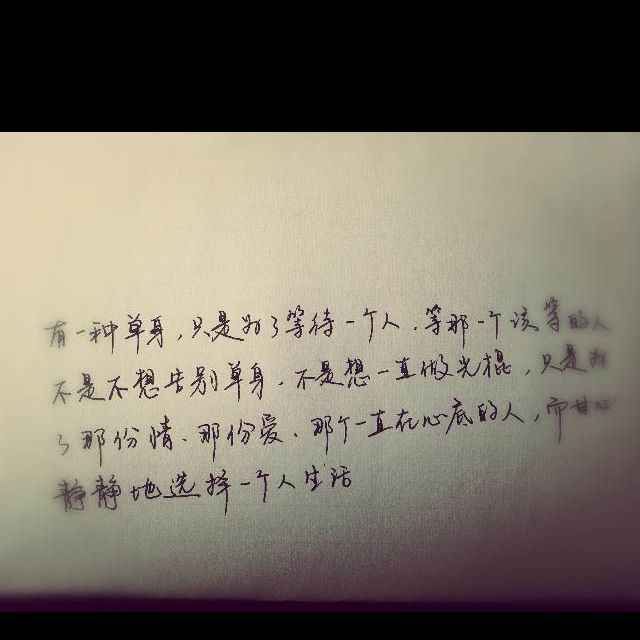 有一种单身，只是为了等待一个人，等那一个该等的人
不是不想告别单身，不是想一直做光棍，只是为
了那份情、那份爱、那个一直在心底的人，而甘心
静静地选择一个人生活